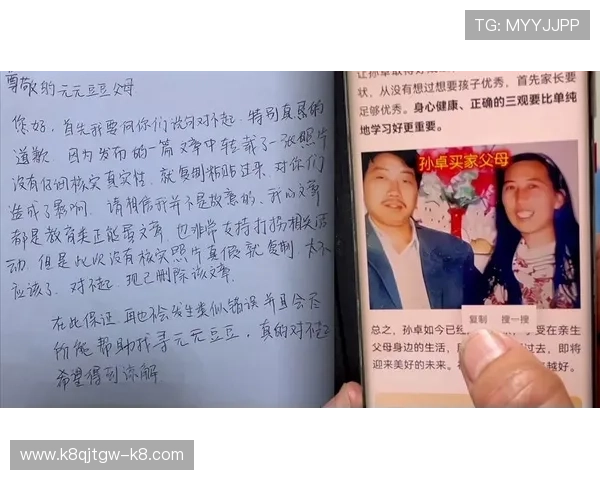 TG: MYYJJPP
尊敬的元元豆豆父母
您好,首先我要向你们说句对不起,特别真恳的
道歉 因为发布的一篇文章中转载了一张照片
没有仔细核实真实性,就复制粘贴过来,对你们
造成了影响,请相信我并不是故意的,我的文章
都是教育类正能量文章,也非常支持打拐相关活
动,但是此次没有核实照片真假就复制,太不
应该了,对不起,现已删除该文章.
在此保证,再也不会发生类似错误并且会尽
所能帮助找寻元元豆豆,真的对不起
希望得到谅解
让孙卓取得好成
状,从没有想过想要孩子优秀,首先家长要
足够优秀。身心健康、正确的三观要比单纯
地学习好更重要。
孙卓买家父母
复制 搜一搜
总之,孙卓如今已经 受在亲生
父母身边的生活, 过去,即将
迎来美好的未来。 越好。
www.k8qjtgw-k8.com